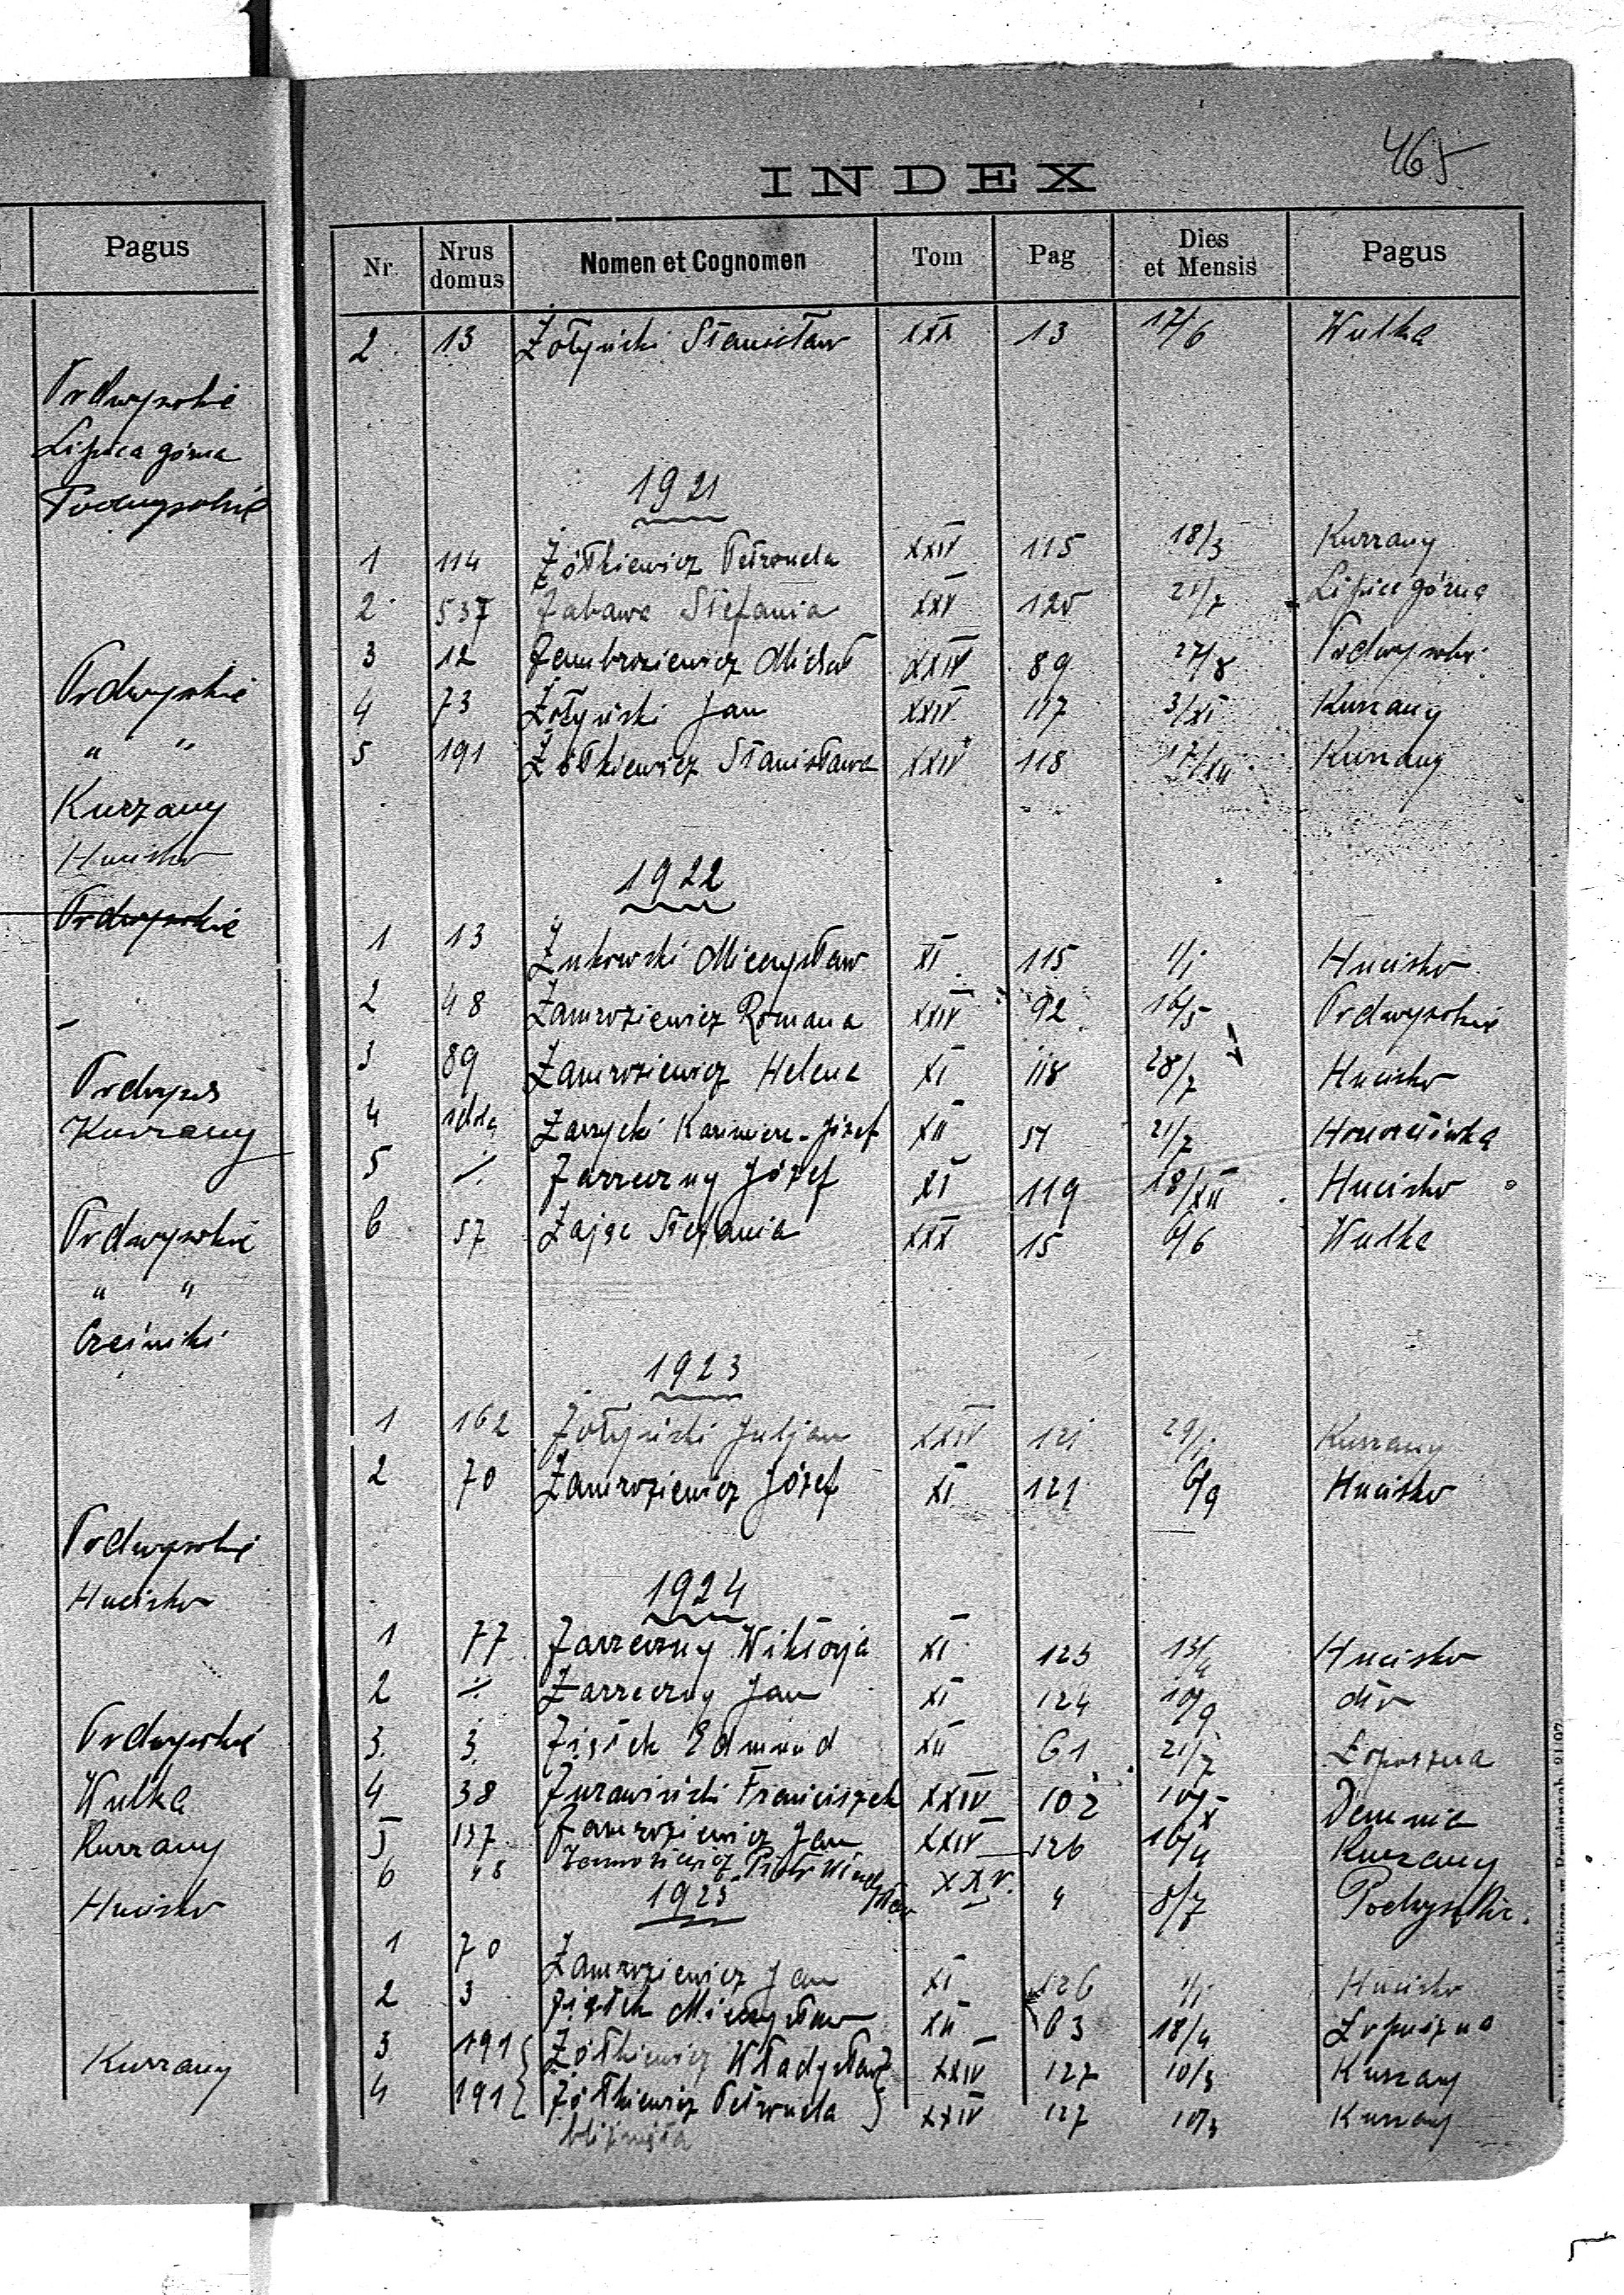 Pagus
Podwysokie
Lipica górna
Podwysokie
Podwysokie
" "
Kurzany
Hucisko
Podwysokie
Podwys
Kurzany
Podwysokie
" "
Cześniki
Podwysokie
Hucisko
Podwysokie
Wulka
Kurzany
Hucisko
Kurzany
465
INDEX
Nr Nrus domus Nomen et Cognomen Tom Pag Dies et Mensis Pagus
2 13 Żołyński Stanisław XXX 13 17/6 Wulka
1921
1 114 Żółkiewicz Petronela XXIV 115 18/3 Kurzany
2 537 Zabawa Stefania XXV 120 21/7 Lipica górna
3 12 Zambroziewicz Michał XXIV 89 27/8 Podwysokie
4 73 Żołyński Jan XXIV 117 3/XI Kurzany
5 191 Żółkiewicz Stanisława XXIV 118 17/XII Kurzany
1922
1 13 Żukowski Mieczysław XI 115 1/1 Hucisko
2 48 Zamroziewicz Romana XXIV 92 16/5 Podwysokie
3 89 Zamroziewicz Helena XI 118 28/7 Hucisko
4 Zarzycki Kazimierz-Józef XII 51 21/7
5 ./. Zarzeczny Józef XI 119 18/XII Hucisko
6 57 Zając Stefania XXX 15 6/6 Wulka
1923
1 162 Żołyński Juljan XXIV 121 29/1 Kurzany
2 70 Zamroziewicz Józef XI 121 6/9 Hucisko
1924
1 77 Zarzeczny Wiktorja XI 123 13/4 Hucisko
2 ./. Zarzeczny Jan XI 124 10/9 dto
3. 3. Ziętek Edmund XII 61 21/7 Łopuszna
4 38 Żurawiński Franciszek XXIV 102 10/X Demnia
5 137 Zamroziewicz Jan XXIV 126 16/4 Kurzany
6 48 Zamroziewicz Piotr XXV. 4 8/7 Podwysokie.
1925
1 70 Zamroziewicz Jan XI 126 1/1 Hucisko
2 3 Ziętek Mieczysław XII 63 18/4 Łopuszna
3 191 Żółkiewicz Władysław XXIV 127 10/3 Kurzany
4 191 Żółkiewicz Petronela XXIV 127 10/3 Kurzany
bliźnięta